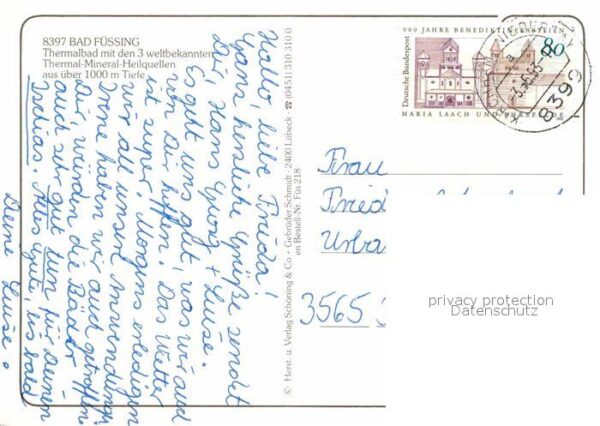 8397 BAD FÜSSING
Thermalbad mit den 3 weltbekannten
Thermal-Mineral-Heilquellen
aus über 1000 m Tiefe
Hallo, liebe Frieda!
Ganz herzliche Grüße sendet
Dir, Hans Georg + Luise.
Es geht uns gut, was wir auch
von Dir hoffen. Das Wetter
ist super. Morgens erledigen
wir all unsere Anwendungen.
haben wir auch getroffen.
Dir würden die Bäder
auch sehr gut tun für Deinen
Ischias. Alles Gute, bis bald
Deine Luise.
© Herst. u. Verlag Schöning & Co + Gebrüder Schmidt · 2400 Lübeck · ☎ (0451) 31 03 10
en Bestell-Nr. Füs 218
900 JAHRE BENEDIKTINERABTEIEN
Deutsche Bundespost
80
MARIA LAACH UND BURSFELDE
8399
Frau
Fried
Urba
3565
privacy protection
Datenschutz